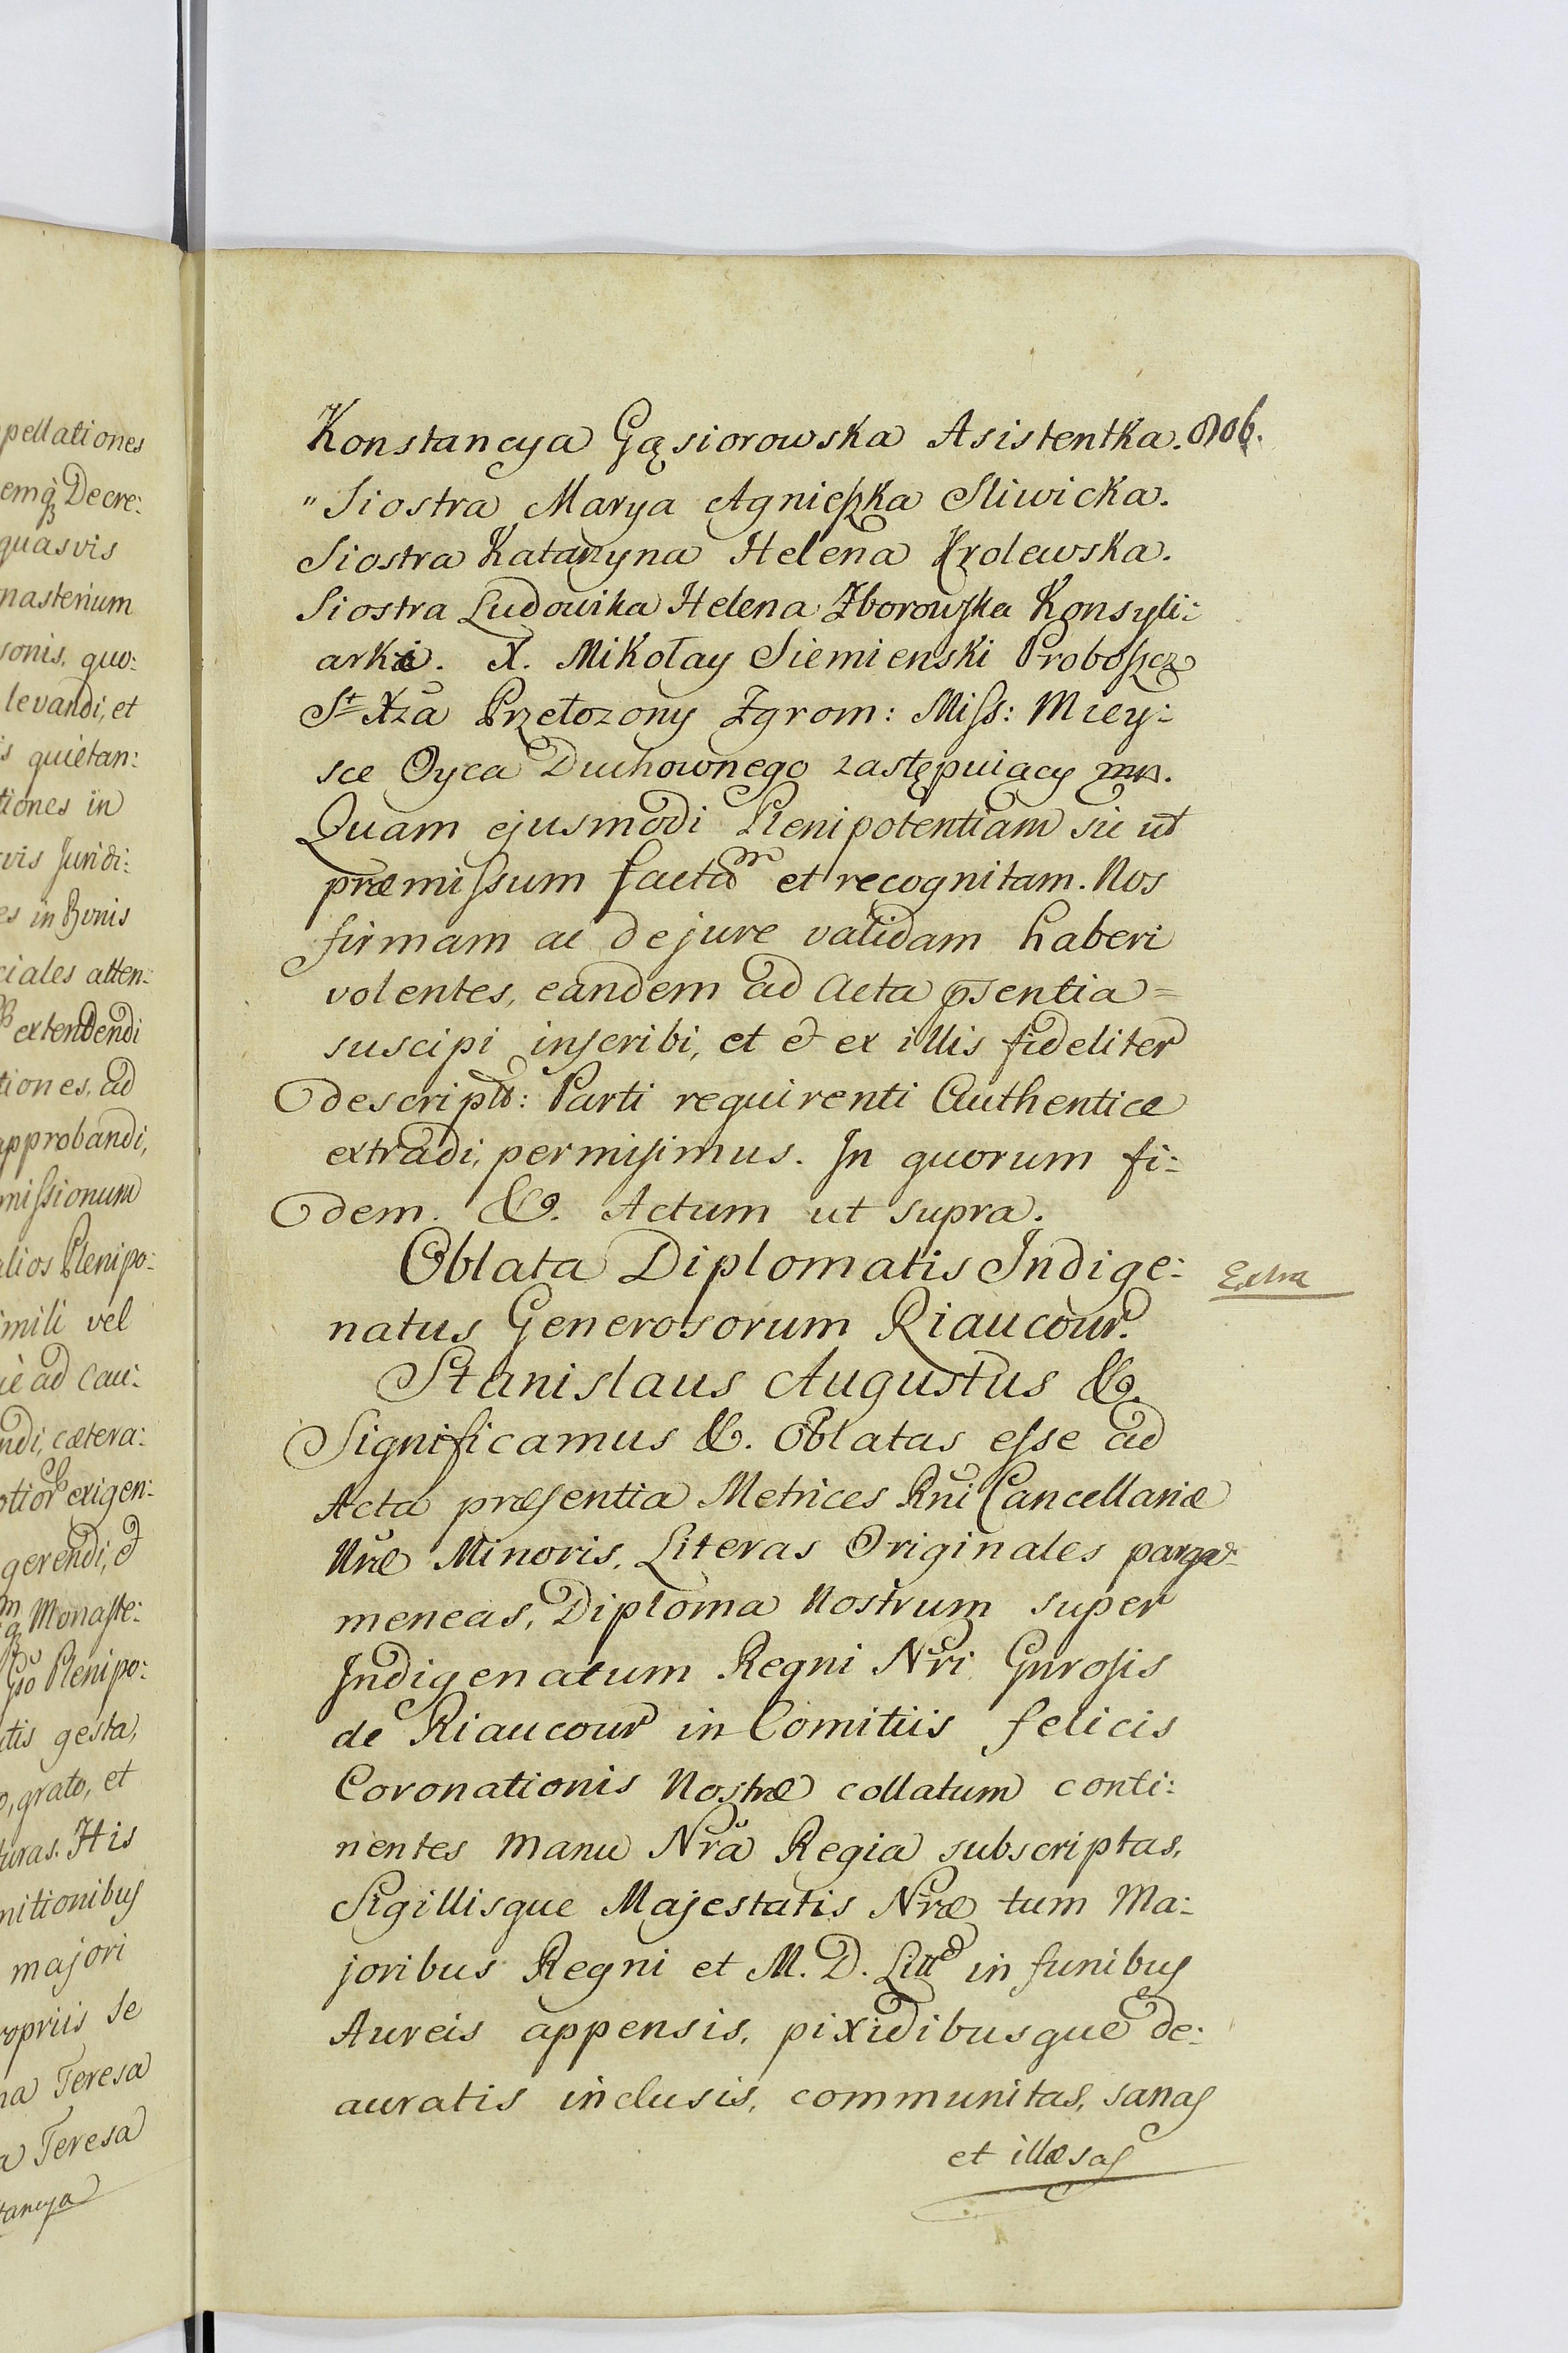 pellationes
emq̃ Decre:
quasvis
nasterium
sonis, quo:
levandi, et
s quietan:
tiones in
vis Juridi:
es in Bonis
ciales atten:
extendendi
tiones, ad
approbandi,
missionum
alios Plenipo:
imili vel
ad Cau:
ndi, cætera:
exigen:
gerendi, et
Monaste:
Plenipo:
tis gesta,
o, grato, et
turas. His
nitionibus
majori
ropriis se
na Teresa
a Teresa
tancya
Konstancya Gąsiorowska Asistentka.
" Siostra Marya Agnieszka Sliwicka.
Siostra Katarzyna Helena Krolewska.
Siostra Ludowika Helena Zborowska Konsyli:
arki. X. Mikołay Siemienski Proboszcz
St Xza Przełozony Zgrom: Miss: Miey:
sce Oyca Duchownego zastępuiący mp.
Quam ejusmodi Plenipotentiam sic ut
præmissum factam et recognitam. Nos
firmam ac de jure validam haberi
volentes, eandem ad Acta psentia =
suscipi inscribi, et & ex illis fideliter
descriptd: Parti requirenti Authentice
extradi, permisimus. In quorum fi:
dem. &c. Actum ut supra.
Oblata Diplomatis Indige:
Extra
natus Generosorum Riaucour.
Stanislaus Augustus &c.
Significamus &c. Oblatas esse ad
Acta præsentia Metrices Rni Cancellariæ
Nræ Minoris, Literas Originales parga:
meneas, Diploma Nostrum super
Indigenatum Regni Nri Gnrosis
de Riaucour in Comitiis felicis
Coronationis Nostræ collatum conti:
nentes manu Nrã Regia subscriptas,
Sigillisque Majestatis Nræ tum Ma:
joribus Regni et M. D. Litt in funibus
Aureis appensis, pixidibusque de:
auratis inclusis, communitas, sanas
et illæsas